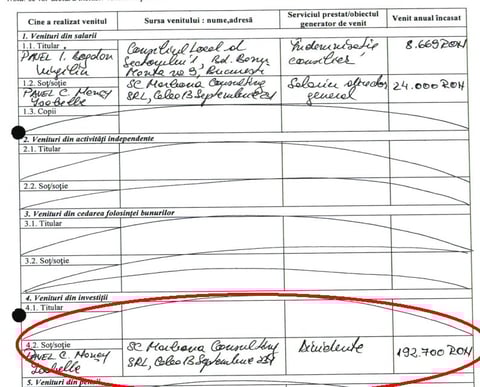 Cine a realizat venitul
Sursa venitului : nume,adresă
Serviciul prestat/obiectul
generator de venit
Venit anual încasat
1. Venituri din salarii
1.1. Titular
PAVEL I. Bogdan
Virgiliu
Consiliul Local al
Sectorului 1, Bd. Banu
Manta no 9, Bucuresti
Indemnizație
consilier
8.669 RON
1.2. Soț/soție
PAVEL C. Nancy
Isabelle
SC Mariana Consulting
SRL, Calea 13 Septembrie
Salariu
general
24.000 RON
1.3. Copii
2. Venituri din activități independente
2.1. Titular
2.2. Soț/soție
3. Venituri din cedarea folosinței bunurilor
3.1. Titular
3.2. Soț/soție
4. Venituri din investiții
4.1. Titular
4.2. Soț/soție
PAVEL C. Nancy
Isabelle
SC Mariana Consulting
SRL, Calea 13 Septembrie
Dividente
192.700 RON
5. Venituri din pensii